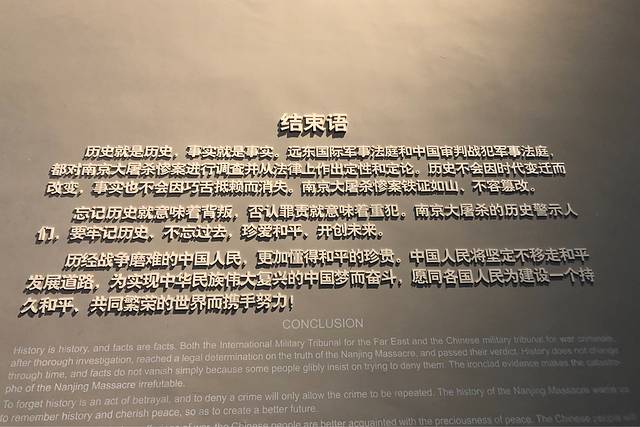 结束语
历史就是历史，事实就是事实。远东国际军事法庭和中国审判战犯军事法庭，
都对南京大屠杀惨案进行调查并从法律上作出定性和定论。历史不会因时代变迁而
改变，事实也不会因巧舌抵赖而消失。南京大屠杀惨案铁证如山，不容篡改。
忘记历史就意味着背叛，否认罪责就意味着重犯。南京大屠杀的历史警示人
们，要牢记历史、不忘过去，珍爱和平、开创未来。
历经战争磨难的中国人民，更加懂得和平的珍贵。中国人民将坚定不移走和平
发展道路，为实现中华民族伟大复兴的中国梦而奋斗，愿同各国人民为建设一个持
久和平、共同繁荣的世界而携手努力！
CONCLUSION
History is history, and facts are facts. Both the International Military Tribunal for the Far East and the Chinese military tribunal for war criminals,
after thorough investigation, reached a legal determination on the truth of the Nanjing Massacre, and passed their verdict. History does not change
through time, and facts do not vanish simply because some people glibly insist on trying to deny them. The ironclad evidence makes the catastro-
phe of the Nanjing Massacre irrefutable.
To forget history is an act of betrayal, and to deny a crime will only allow the crime to be repeated. The history of the Nanjing Massacre warns us
to remember history and cherish peace, so as to create a better future.
of war, the Chinese people are better acquainted with the preciousness of peace. The Chinese people will